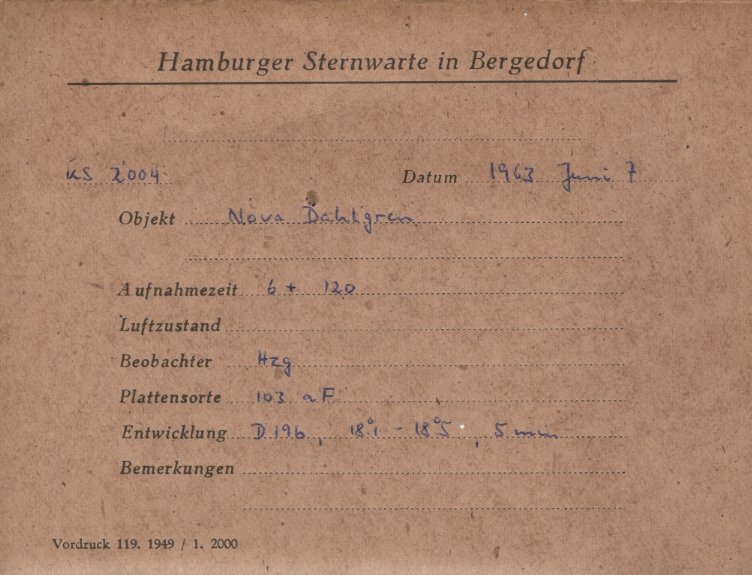 Hamburger Sternwarte in Bergedorf
KS 2004 Datum 1963 Juni 7
Objekt Nova Dahlgren
Aufnahmezeit 6 + 120
Luftzustand
Beobachter Hzg
Plattensorte 103 aF
Entwicklung D19b, 18°1 - 18°5, 5 min
Bemerkungen
Vordruck 119. 1949 / 1. 2000